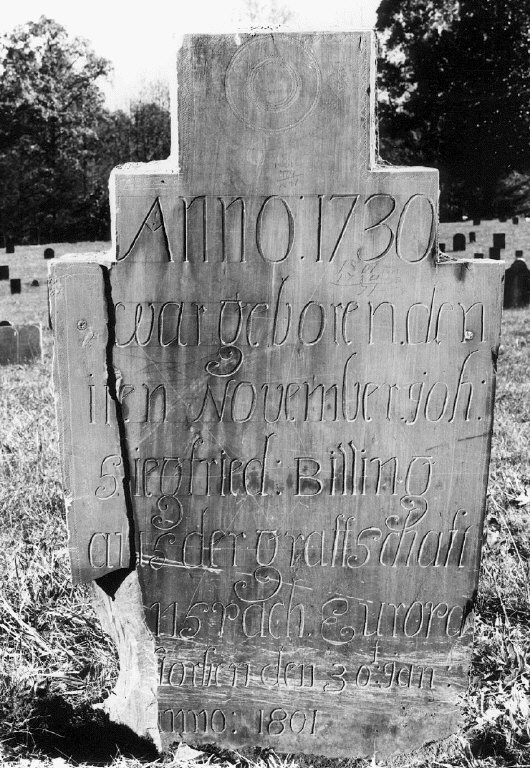 Anno:1730
war geboren.den
iten November joh:
siegfried: Billing
aus der graffschaft
Europa
den 30t Jan:
nno: 1801